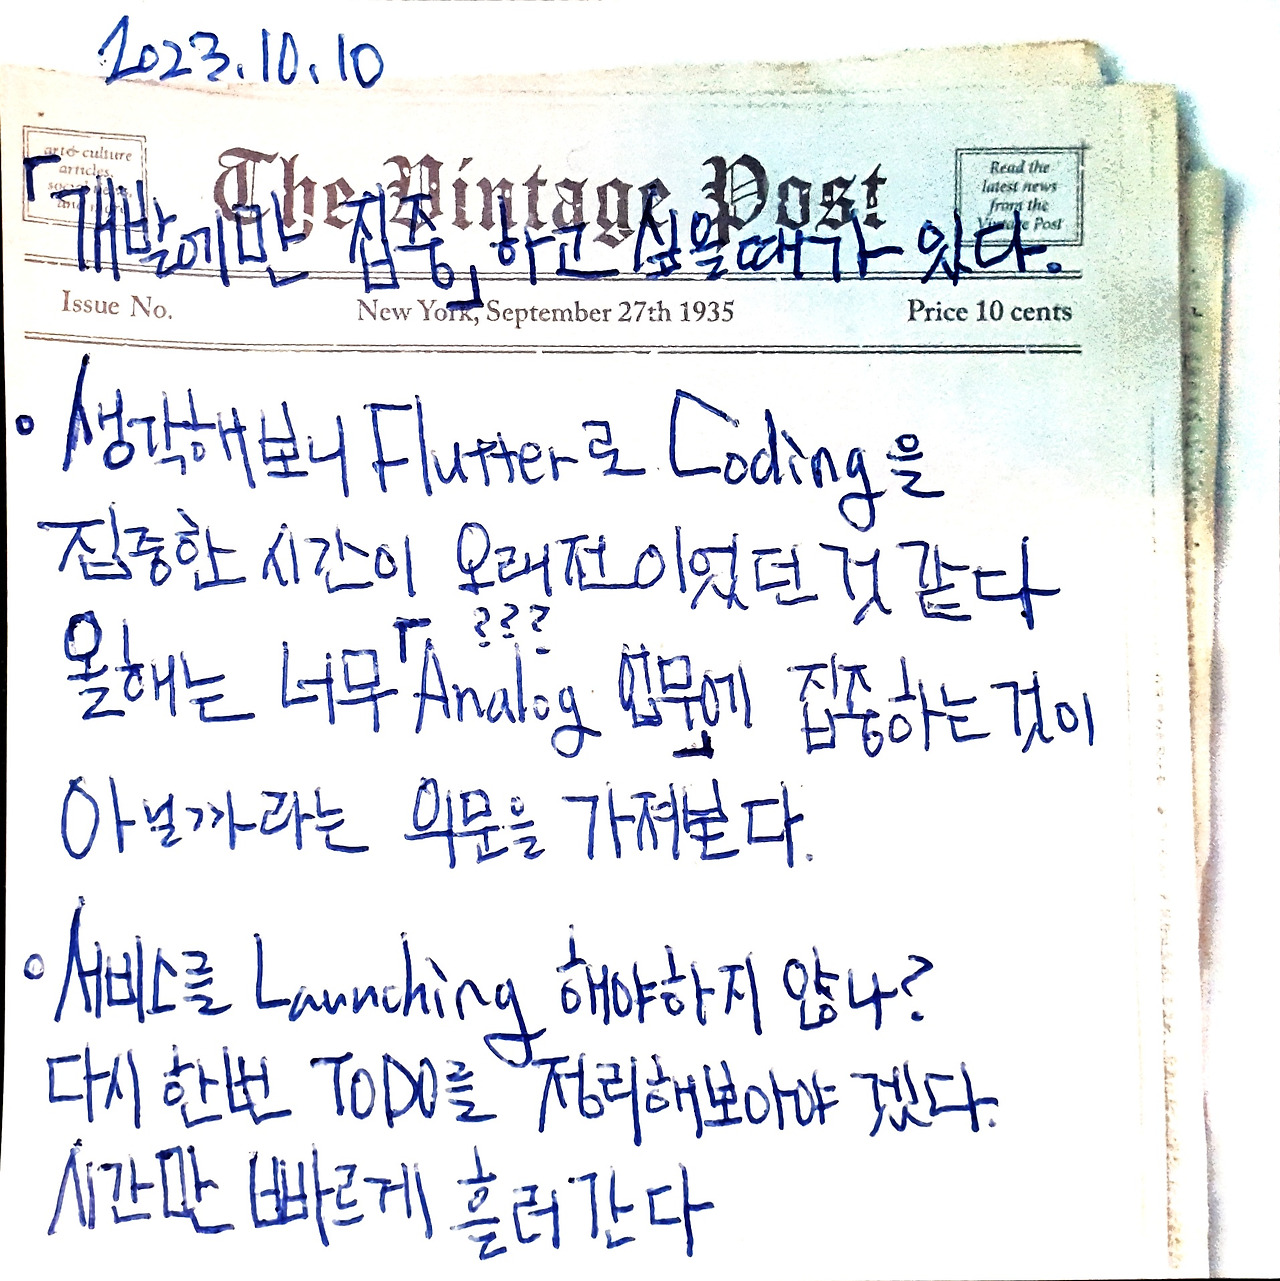 2023.10.10
art & culture
articles,
Read the
latest news
from the
Vintage Post
The Vintage Post
「개발에만 집중」하고 싶을때가 있다.
Issue No. New York, September 27th 1935 Price 10 cents
• 생각해보니 Flutter로 Coding을
집중한 시간이 오래전이었던 것 같다
???
올해는 너무 「Analog 업무」에 집중하는것이
아닐까라는 의문을 가져본다.
• 서비스를 Launching 해야하지 않나?
다시 한번 TODO를 정리해보아야 겠다.
시간만 빠르게 흘러간다